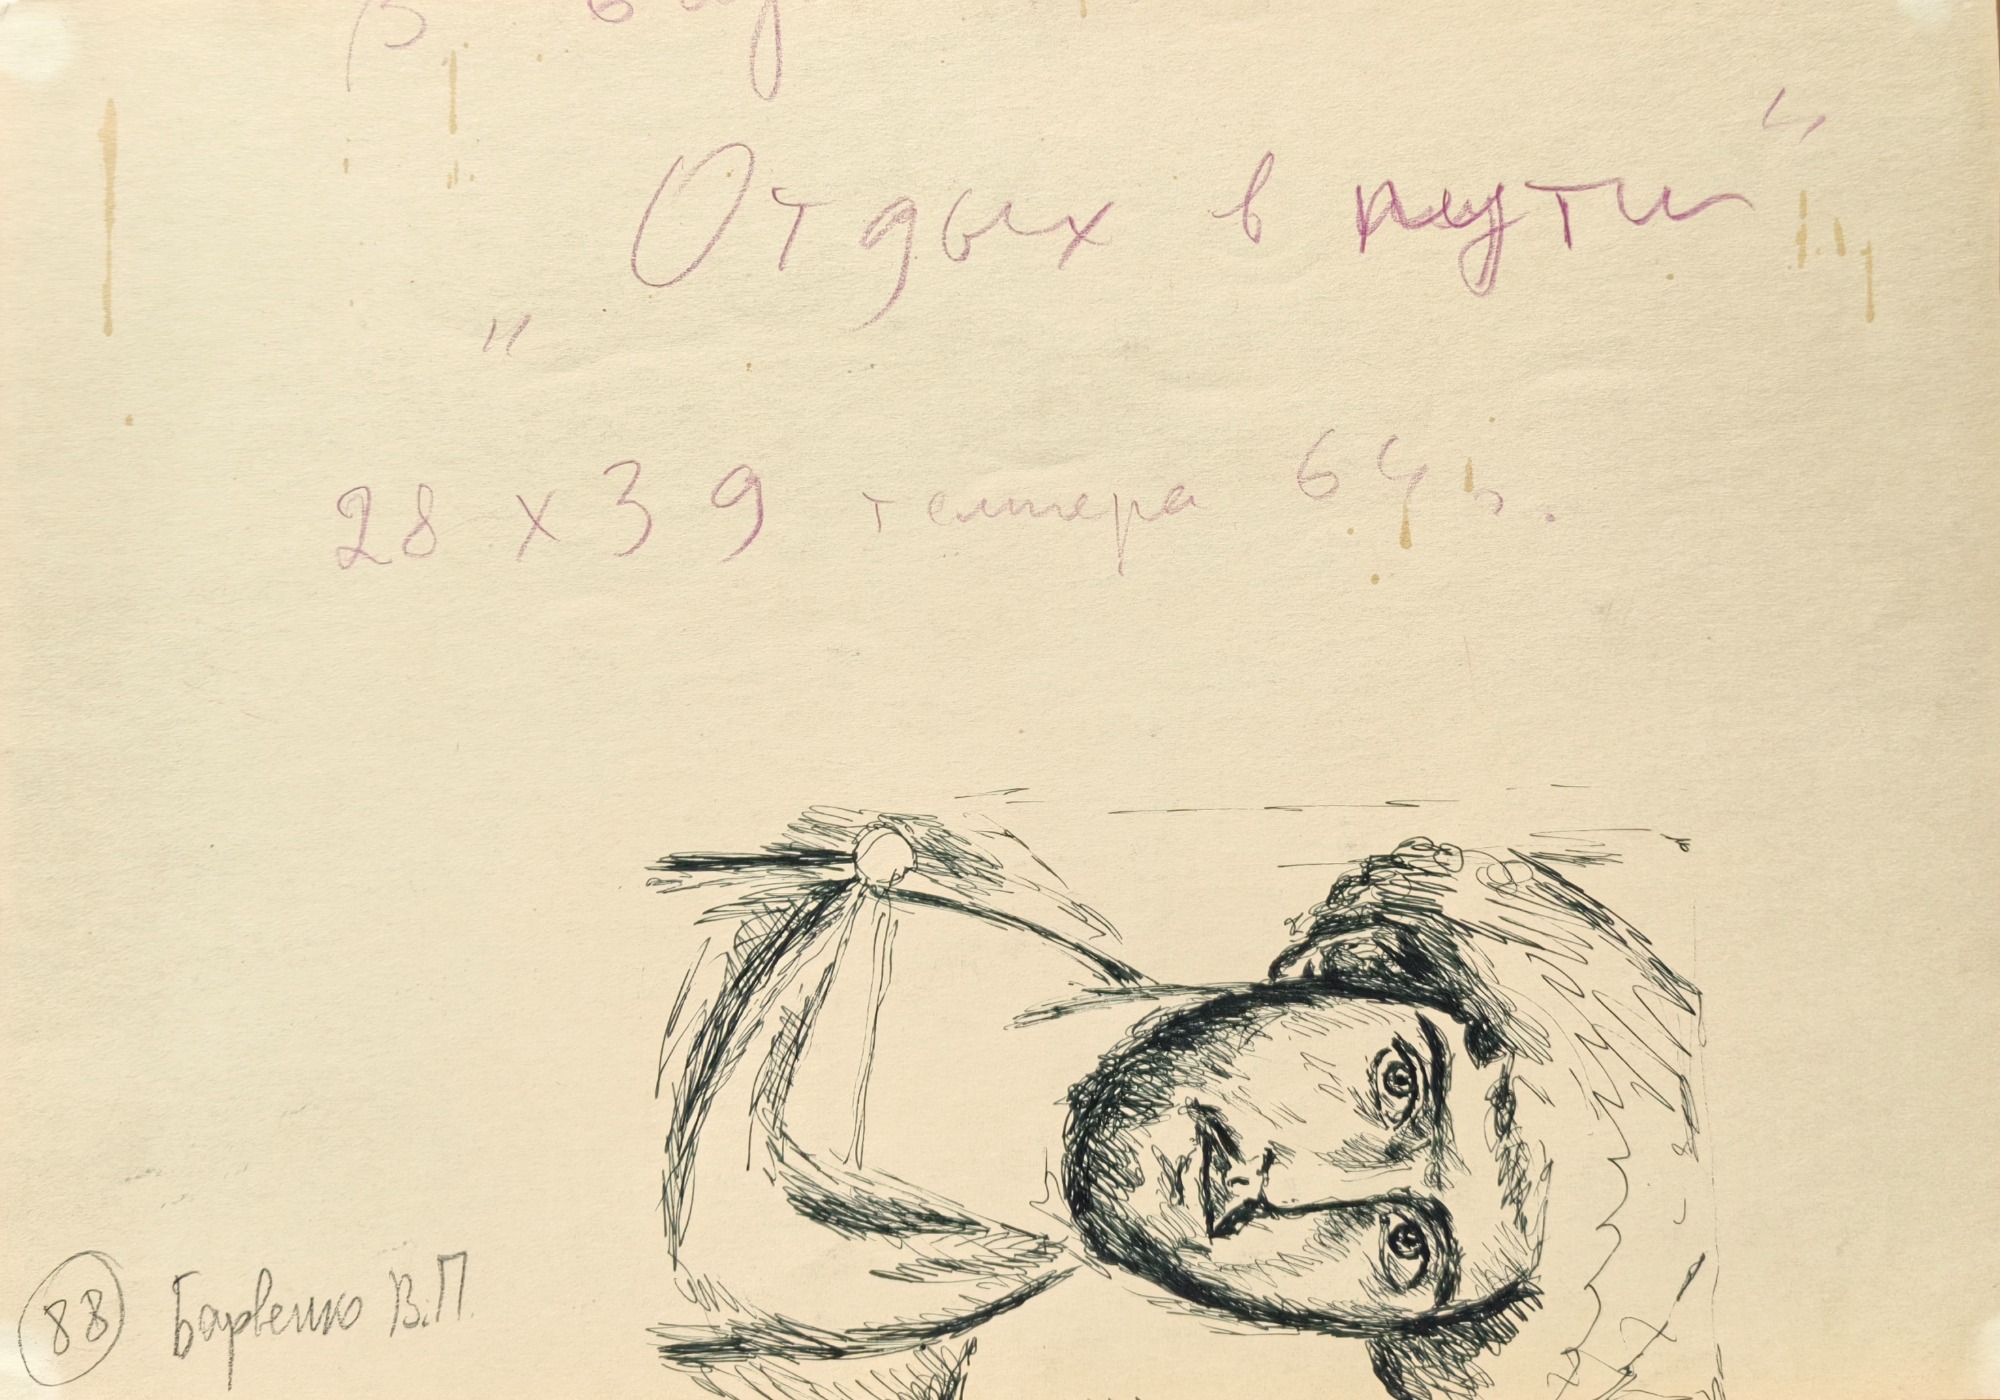 „Отдых в пути“
28 x 39 темпера 64 г.
88 Барвенко В.П.